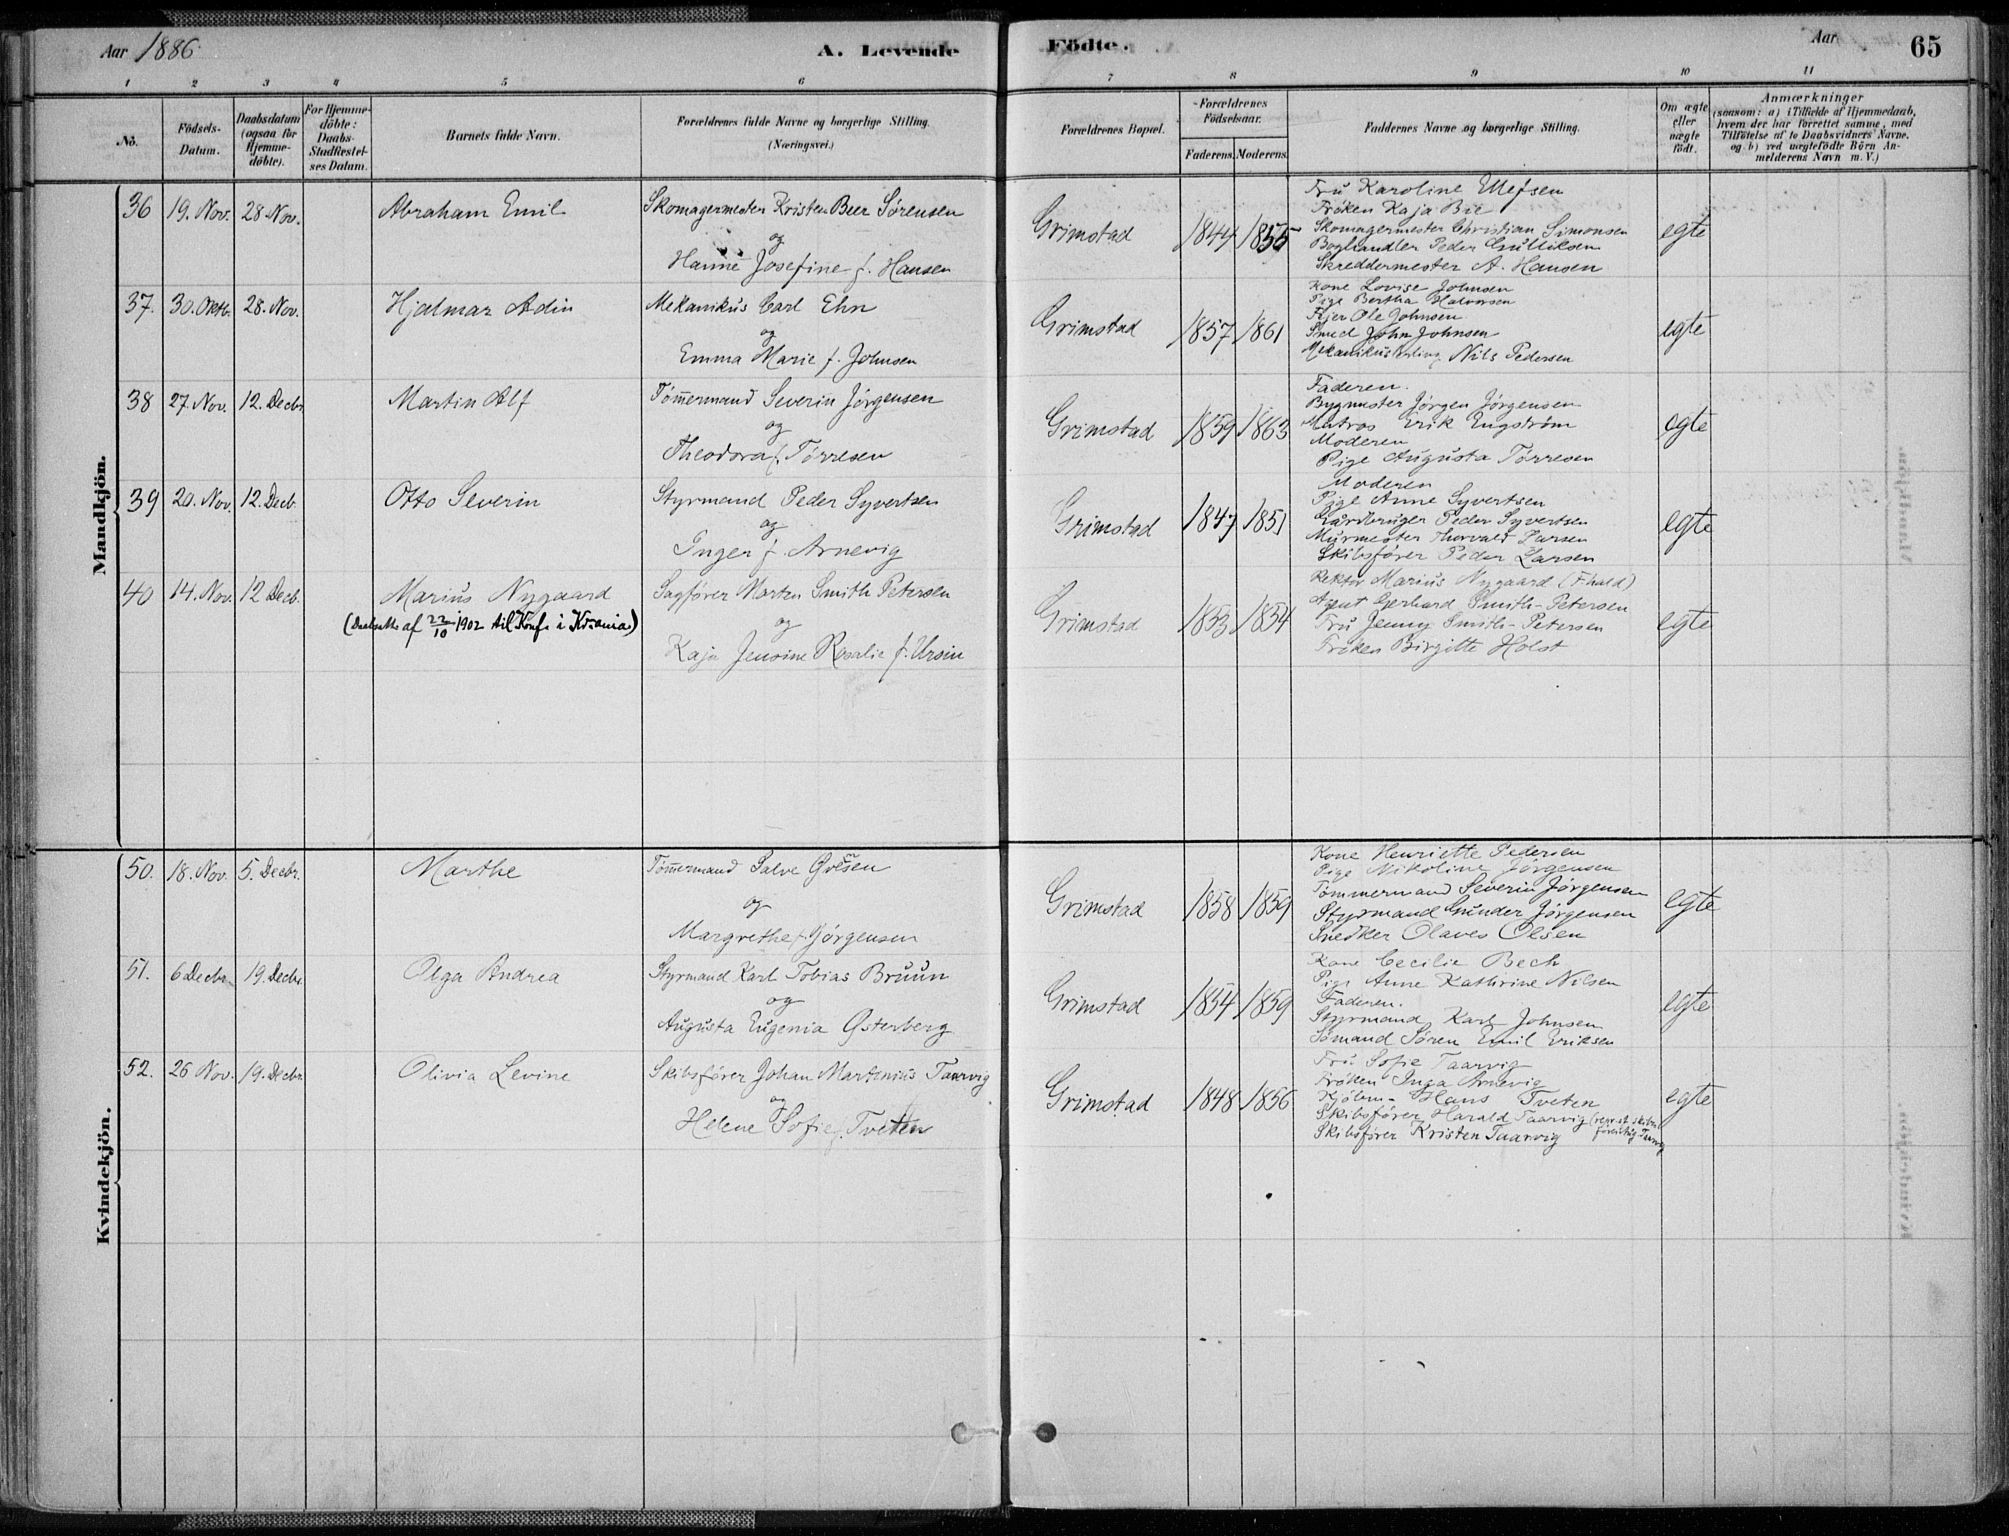 Aar 1886
A. Levende Födte.
Aar
65
1 2 3 4 5 6 7 8 9 10 11
No.
Födsels-Datum.
Daabsdatum (ogsaa for Hjemme-döbte).
For Hjemme-döbte: Daabs-Stadfestel-ses Datum.
Barnets fulde Navn.
Forældrenes fulde Navne og borgerlige Stilling. (Næringsvei.)
Forældrenes Bopæl.
Forældrenes Födselsaar.
Faderens. Moderens.
Faddernes Navne og borgerlige Stilling.
Om ægte eller uægte födt.
Anmærkninger
(saasom: a) i Tilfælde af Hjemmedaab, hvem der har forrettet samme, med Tilföielse af to Daabsvidners Navne, og b) ved uægtefödte Börn An-melderens Navn m. V.)
Mandkjön.
36 19. Nov. 28 Nov. Abraham Emil
Skomagermester Kristen Beer Sörensen
og
Hanne Josefine f. Hansen
Grimstad 1844 1855
Fru Karoline Ellefsen
Fröken Kaja Bie
Skomagermester Christian Simonsen
Boghandler Peder Gulliksen
Skreddermester A. Hansen
egte
37. 30. Oktb. 28. Nov. Hjalmar Adin
Mekanikus Carl Ehn
og
Emma Marie f. Johnsen
Grimstad 1857 1861
Kone Lovise Johnsen
Pige Bertha Halvorsen
Ole Johnsen
Smed John Johnsen
Nils Pedersen
egte
38 27. Nov. 12. Decbr Martin Alf
Tömmermand Severin Jörgensen
og
Theodora f. Törresen
Grimstad 1859 1863
Faderen.
Bygmester Jörgen Jörgensen
Matros Erik Engström
Moderen
Pige Augusta Törresen
egte
39 20. Nov. 12. Decb. Otto Severin
Styrmand Peder Syvertsen
og
Inger f. Arnevig
Grimstad 1847 1851
Moderen
Pige Anne Syvertsen
Gårdbruger Peder Syvertsen
Murmester Thorvald Larsen
Skibsförer Peder Larsen
egte
40 14. Nov. 12 Decb. Marius Nygaard
(Daabsatt. af 22/10 1902 til Konf. i Kr.ania)
Sagförer Morten Smith Petersen
og
Kaja Jensine Rosalie f. Ursin
Grimstad 1853 1854
Rektor Marius Nygaard (Fhald)
Agent Gerhard Smith-Petersen
Fru Jenny Smith-Petersen
Fröken Birgitte Holst
egte
Kvindekjön.
50. 18. Nov. 5. Decbr. Marthe
Tömmermand Salve Olsen
og
Margrethe f. Jörgensen
Grimstad 1858 1859
Kone Henriette Pedersen
Pige Nikoline Jörgensen
Tömmermand Severin Jörgensen
Styrmand Gunder Jörgensen
Snedker Olaves Olsen
egte
51. 6 Decbr. 19. Decbr. Olga Andrea
Styrmand Karl Tobias Bruun
og
Augusta Eugenia Østerberg
Grimstad 1854 1859
Kone Cecilie Bech
Pige Anne Kathrine Nilsen
Faderen.
Styrmand Karl Johnsen
Sömand Sören Emil Eriksen
egte
52. 26 Nov. 19. Decbr. Olivia Levine
Skibsförer Johan Martinius Taarvig
og
Helene Sofie f. Tveten
Grimstad 1848 1856
Fru Sofie Taarvig
Fröken Inga Arnevig
Kjöbm. Hans Tveten
Skibsförer Harald Taarvig
Skibsförer Kristen Taarvig
egte